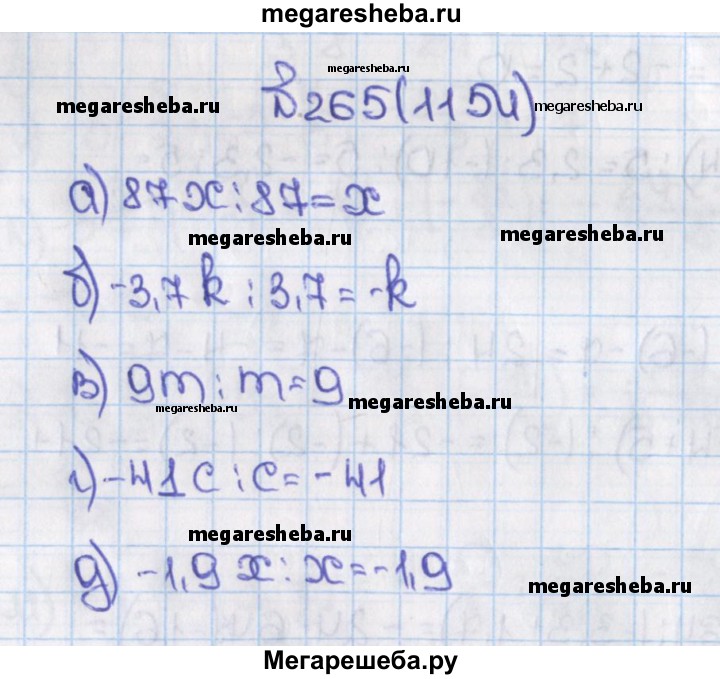 megaresheba.ru
megaresheba.ru
megaresheba.ru № 265(1154) megaresheba.ru
а) 87x : 87 = x
megaresheba.ru megaresheba.ru
б) -3,7k : 3,7 = -k
в) 9m : m = 9
megaresheba.ru megaresheba.ru
г) -41c : c = -41
megaresheba.ru
д) -1,9x : x = -1,9
megaresheba.ru
Мегарешеба.ру